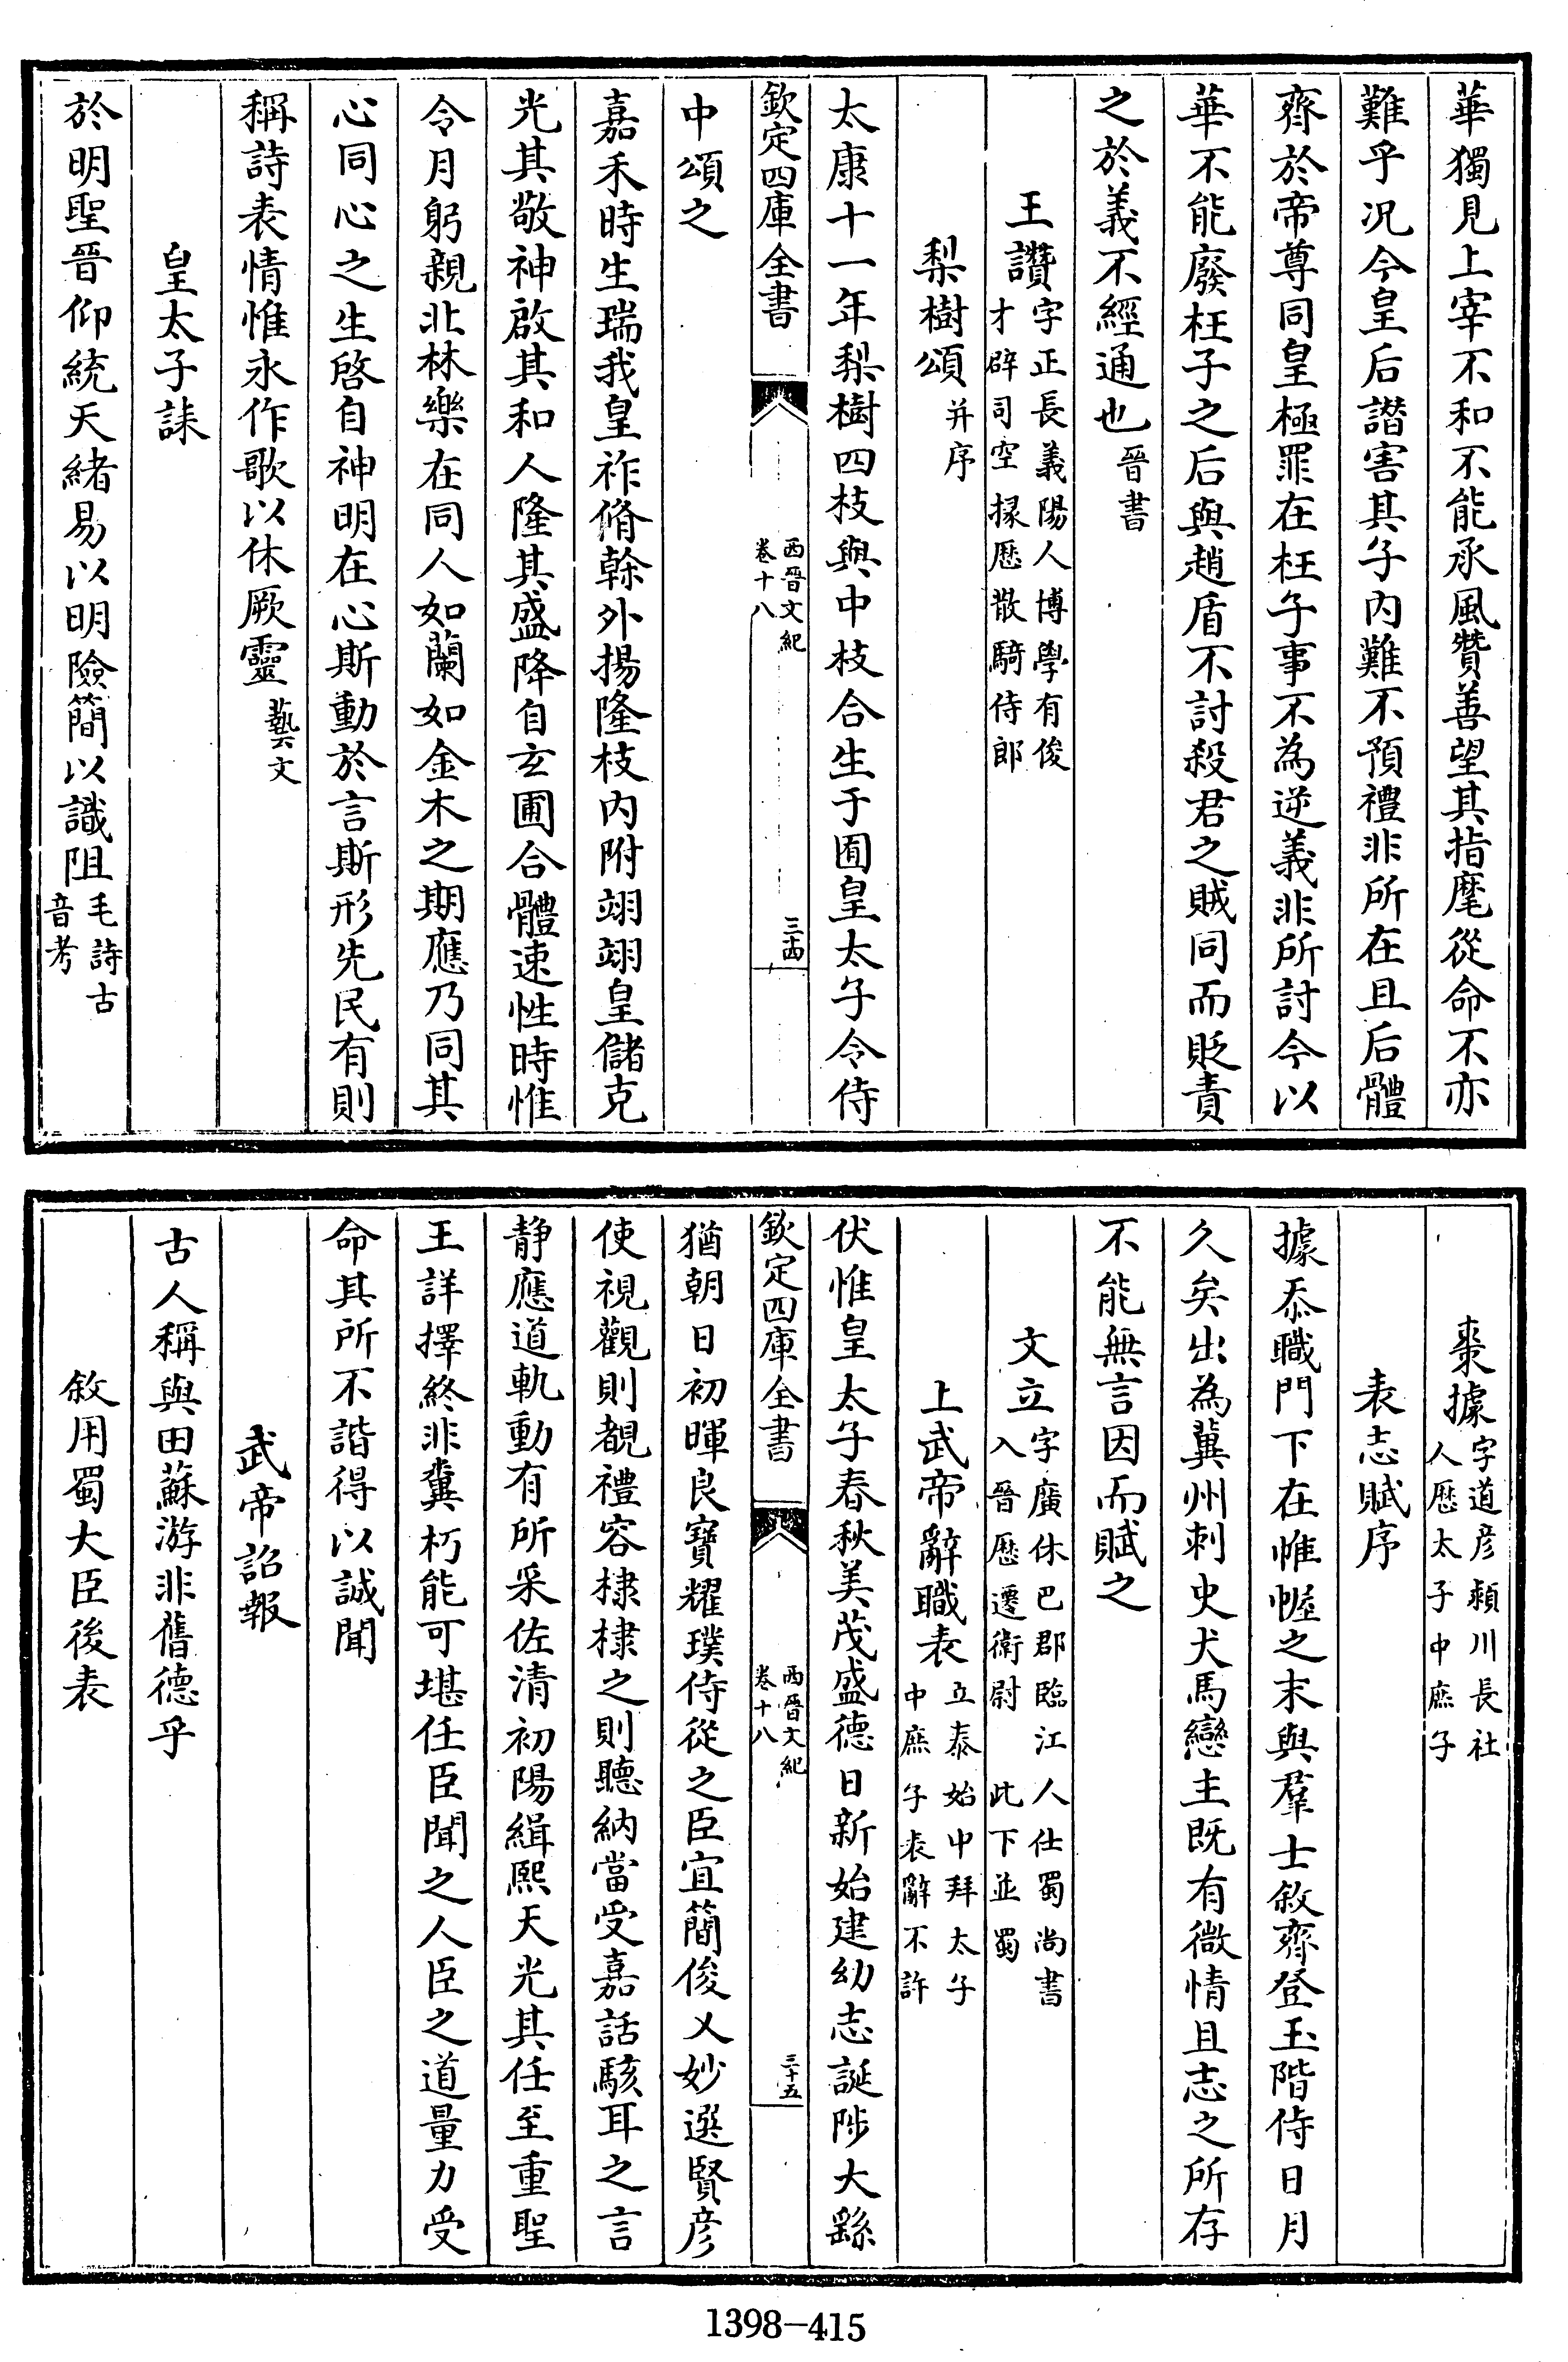 華獨見上宰不和不能承風贊善望其指麾從命不亦
難乎况今皇后譖害其子内難不預禮非所在且后體
齊於帝尊同皇極罪在枉子事不為逆義非所討今以
華不能廢枉子之后與趙盾不討殺君之賊同而貶責
之於義不經通也晉書
王讚字正長義陽人博學有俊
才辟司空掾歷散騎侍郎
梨樹頌并序
太康十一年梨樹四枝與中枝合生于囿皇太子令侍
欽定四庫全書
西晉文紀
卷十八
三十四
中頌之
嘉禾時生瑞我皇祚脩榦外揚隆枝内附翊翊皇儲克
光其敬神啟其和人隆其盛降自玄圃合體連性時惟
令月躬親北林樂在同人如蘭如金木之期應乃同其
心同心之生啓自神明在心斯動於言斯形先民有則
稱詩表情惟永作歌以休厥靈藝文
皇太子誄
於明聖晉仰統天緒易以明險簡以識阻毛詩古
音考
棗據字道彦潁川長社
人歷太子中庶子
表志賦序
據忝職門下在帷幄之末與羣士敘齊登玉階侍日月
久矣出為冀州刺史犬馬戀主既有微情且志之所存
不能無言因而賦之
文立字廣休巴郡臨江人仕蜀尚書
入晉歷遷衛尉 此下並蜀
上武帝辭職表立泰始中拜太子
中庶子表辭不許
伏惟皇太子春秋美茂盛德日新始建幼志誕陟大繇
欽定四庫全書
西晉文紀
卷十八
三十五
猶朝日初暉良寶耀璞侍從之臣宜簡俊乂妙選賢彦
使視觀則覩禮容棣棣之則聽納當受嘉話駭耳之言
静應道軌動有所采佐清初陽緝熙天光其任至重聖
王詳擇終非糞朽能可堪任臣聞之人臣之道量力受
命其所不諧得以誠聞
武帝詔報
古人稱與田蘇游非舊德乎
敘用蜀大臣後表
1398-415